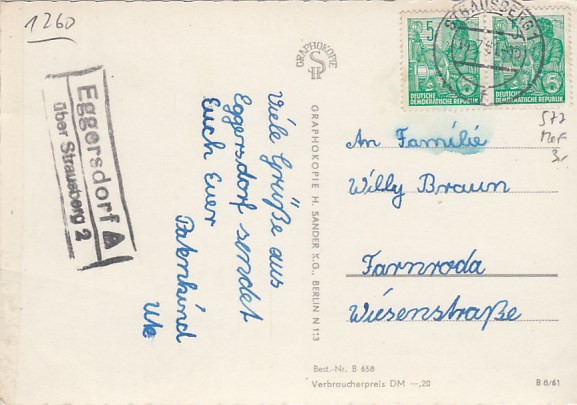 1260
Eggersdorf A
über Strausberg 2
Viele Grüße aus
Eggersdorf sendet
Euch Euer
Patenkind
Ute
GRAPHOKOPIE
GRAPHOKOPIE H. SANDER K.G., BERLIN N 113
STRAUSBERG 1
5
5
DEUTSCHE
DEMOKRATISCHE REPUBLIK
DEUTSCHE
DEMOKRATISCHE REPUBLIK
577
An Familie
Willy Braun
Farnroda
Wiesenstraße
Best.-Nr. B 658
Verbraucherpreis DM —,20
B 6/61